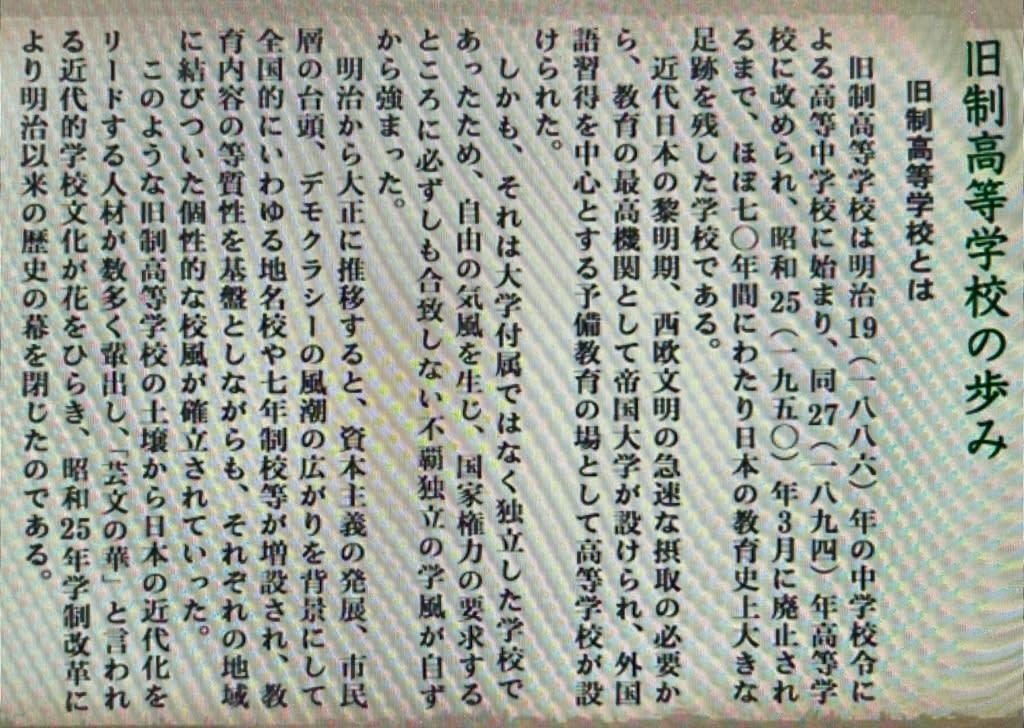 旧制高等学校の歩み
旧制高等学校とは
旧制高等学校は明治19（一八八六）年の中学校令に
よる高等中学校に始まり、同27（一八九四）年高等学
校に改められ、昭和25（一九五〇）年3月に廃止され
るまで、ほぼ七〇年間にわたり日本の教育史上大きな
足跡を残した学校である。
近代日本の黎明期、西欧文明の急速な摂取の必要か
ら、教育の最高機関として帝国大学が設けられ、外国
語習得を中心とする予備教育の場として高等学校が設
けられた。
しかも、それは大学付属ではなく独立した学校で
あったため、自由の気風を生じ、国家権力の要求する
ところに必ずしも合致しない不覇独立の学風が自ず
から強まった。
明治から大正に推移すると、資本主義の発展、市民
層の台頭、デモクラシーの風潮の広がりを背景にして
全国的にいわゆる地名校や七年制校等が増設され、教
育内容の等質性を基盤としながらも、それぞれの地域
に結びついた個性的な校風が確立されていった。
このような旧制高等学校の土壌から日本の近代化を
リードする人材が数多く輩出し、「芸文の華」と言われ
る近代的学校文化が花をひらき、昭和25年学制改革に
より明治以来の歴史の幕を閉じたのである。